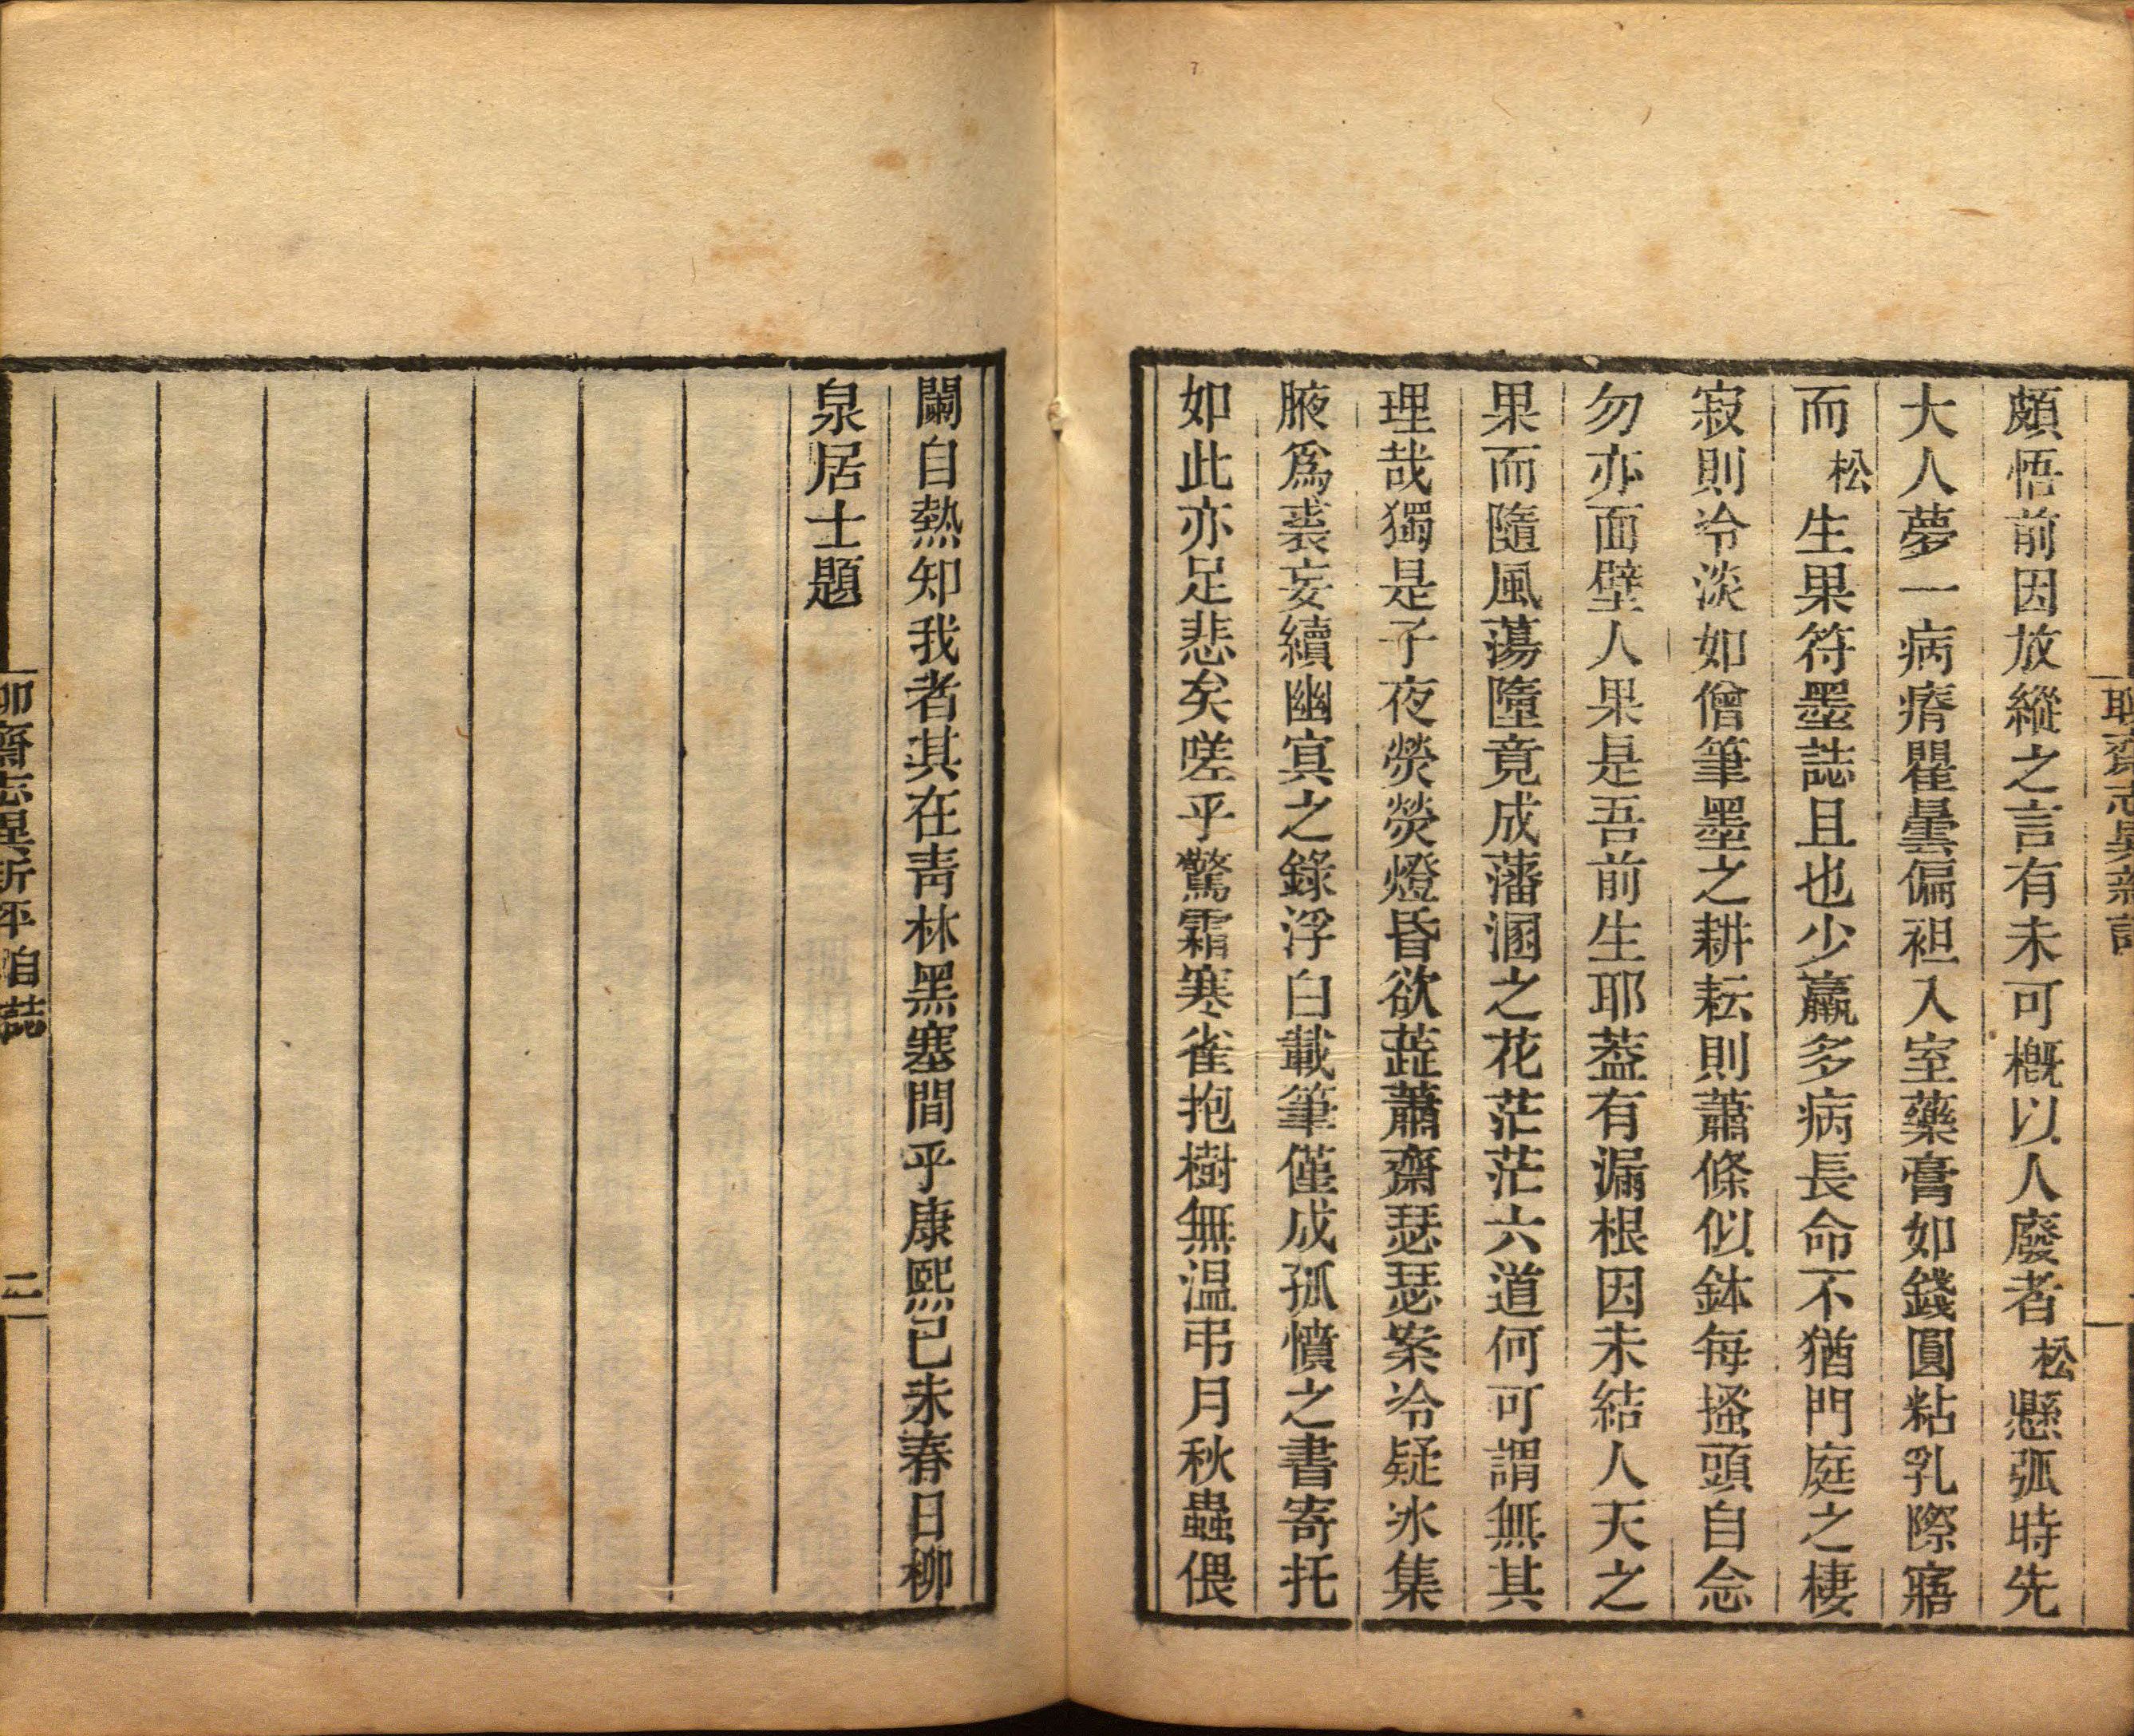 聊齋志異新評
頗悟前因放縱之言有未可槪以人廢者松懸弧時先
大人夢一病瘠瞿曇偏袒入室藥膏如錢圓粘乳際寤
而松生果符墨誌且也少羸多病長命不猶門庭之棲
寂則冷淡如僧筆墨之耕耘則蕭條似鉢每搔頭自念
勿亦面壁人果是吾前生耶葢有漏根因未結人天之
果而隨風蕩墮竟成藩溷之花茫茫六道何可謂無其
理哉獨是子夜熒熒燈昏欲蕋蕭齋瑟瑟案冷疑氷集
腋爲裘妄續幽冥之錄浮白載筆僅成孤憤之書寄托
如此亦足悲矣嗟乎驚霜寒雀抱樹無温弔月秋蟲偎
闌自熱知我者其在靑林黑塞間乎康熙己未春日柳
泉居士題
聊齋志異新評 自誌 二